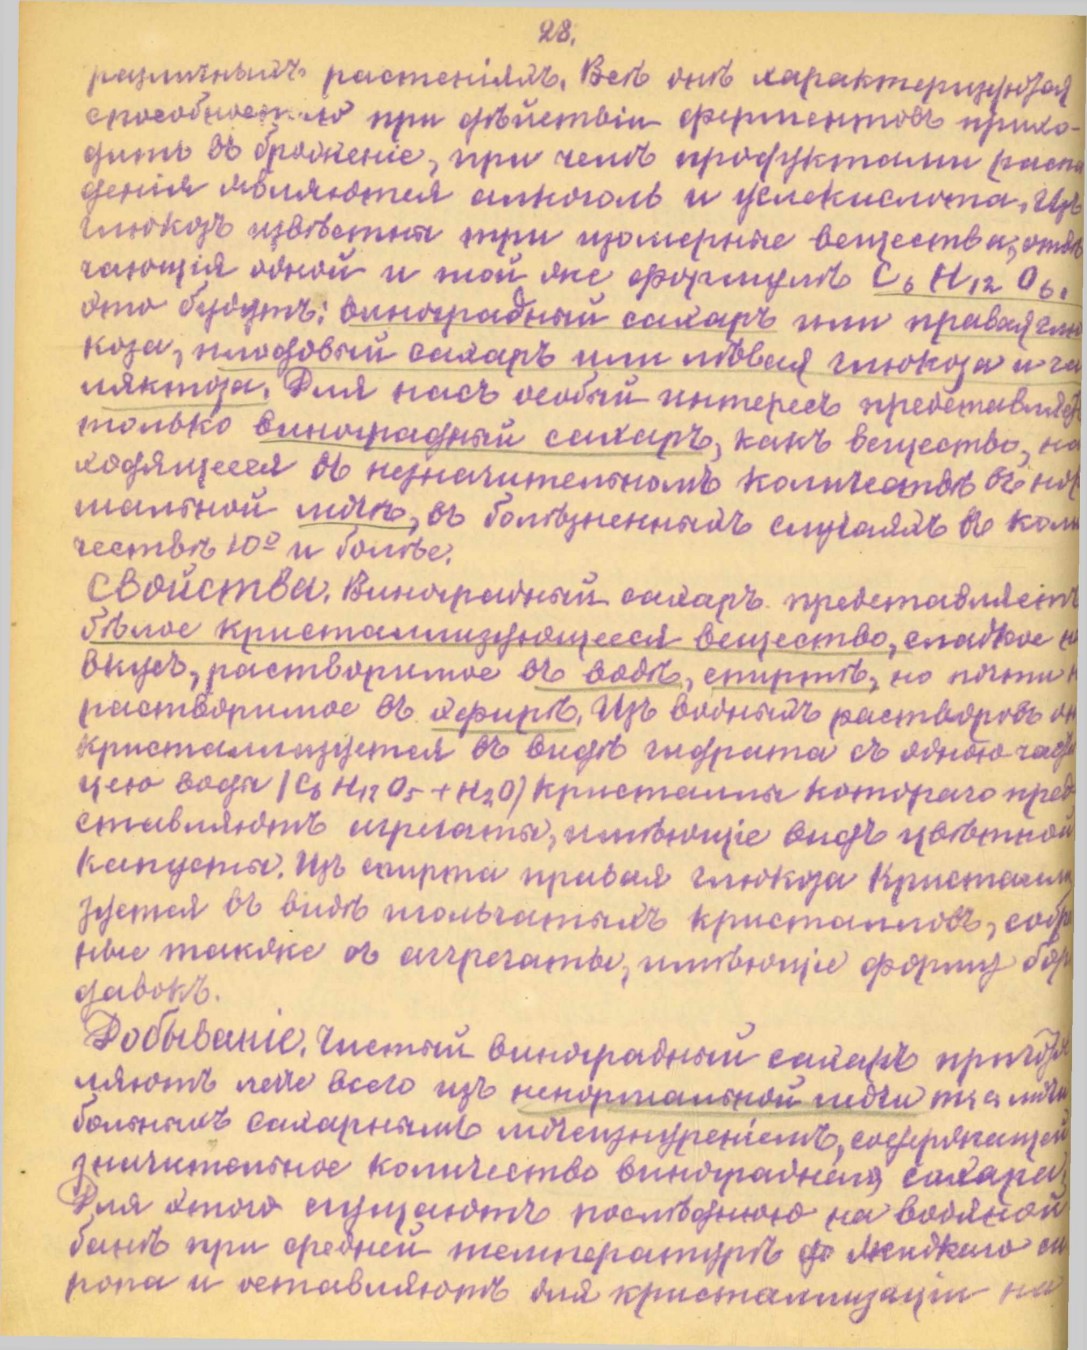 28.
различныхъ растеніяхъ. Всѣ онѣ характеризуются
способностью при дѣйствіи ферментовъ прихо-
дить въ броженіе, при чемъ продуктами распа
денія являются алкоголь и углекислота. Изъ
глюкозъ извѣстны три изомерные вещества, отвѣ
чающія одной и той же формулѣ C6 H12 O6.
Это будутъ: виноградный сахаръ или правая глю
коза, плодовый сахаръ или лѣвая глюкоза и га
ляктоза. Для насъ особый интересъ представляетъ
только виноградный сахаръ, какъ вещество, на
ходящееся въ незначительномъ количествѣ въ нор
мальной мочѣ, въ болѣзненныхъ случаяхъ въ коли
чествѣ 10% и болѣе.
Свойства. Виноградный сахаръ представляетъ
бѣлое кристаллизующееся вещество, сладкое на
вкусъ, растворимое въ водѣ, спиртѣ, но почти н
растворимое въ эфирѣ. Изъ водныхъ растворовъ он
кристаллизуется въ видѣ гидрата съ одною части
цею воды (C6 H12 O5 + H2O) кристаллы котораго пред
ставляютъ агрегаты, имѣющіе видъ цвѣтной
капусты. Изъ спирта правая глюкоза кристалли
зуется въ видѣ игольчатыхъ кристалловъ, собра
ные также въ аггрегаты, имѣющіе форму бор
давокъ.
Добываніе. Чистый виноградный сахаръ приготов
ляютъ легче всего изъ ненормальной мочи т. е. мочи
больныхъ сахарнымъ мочеизнуреніемъ, содержащей
значительное количество винограднаго сахара.
Для этого сгущаютъ послѣднюю на водяной
банѣ при средней температурѣ до жидкаго си
ропа и оставляютъ для кристаллизаціи на